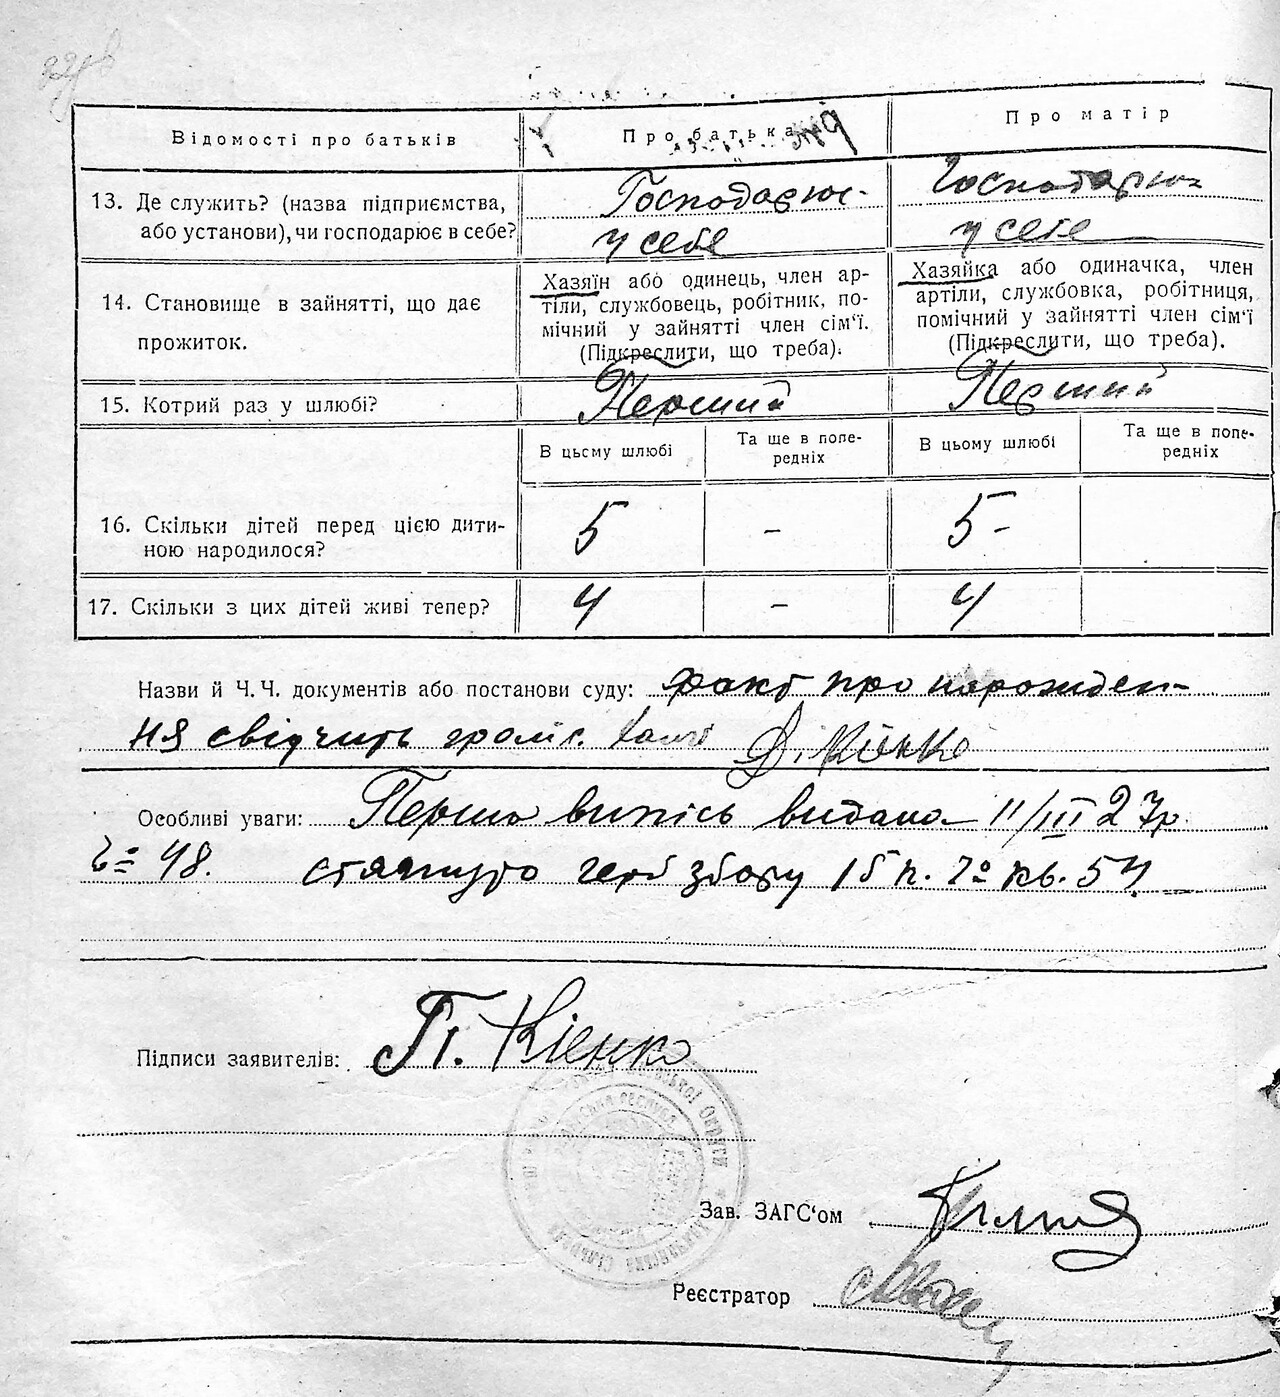 Відомості про батьків
Про батька
Про матір
13. Де служить? (назва підприємства,
або установи), чи господарює в себе?
Господарює
у себе
Господарює
у себе
14. Становище в зайнятті, що дає
прожиток.
Хазяїн або одинець, член ар-
тілі, службовець, робітник, по-
мічний у зайнятті член сім'ї.
(Підкреслити, що треба).
Хазяйка або одиначка, член
артіли, службовка, робітниця,
помічний у зайнятті член сім'ї
(Підкреслити, що треба).
15. Котрий раз у шлюбі?
Перший
Перший
В цьому шлюбі
Та ще в попе-
редніх
В цьому шлюбі
Та ще в попе-
редніх
16. Скільки дітей перед цією дити-
ною народилося?
5
-
5-
17. Скільки з цих дітей живі тепер?
4
-
4
Назви й Ч.Ч. документів або постанови суду: факт про нарожден-
ня свідчить Д. Кієнко
Особливі уваги: Перша випись видана 11/III 27р.
48. стягнуто герб збору 15 к. кв. 54
Підписи заявителів: П. Кієнко
Округи
Зав. ЗАГС'ом
Реєстратор